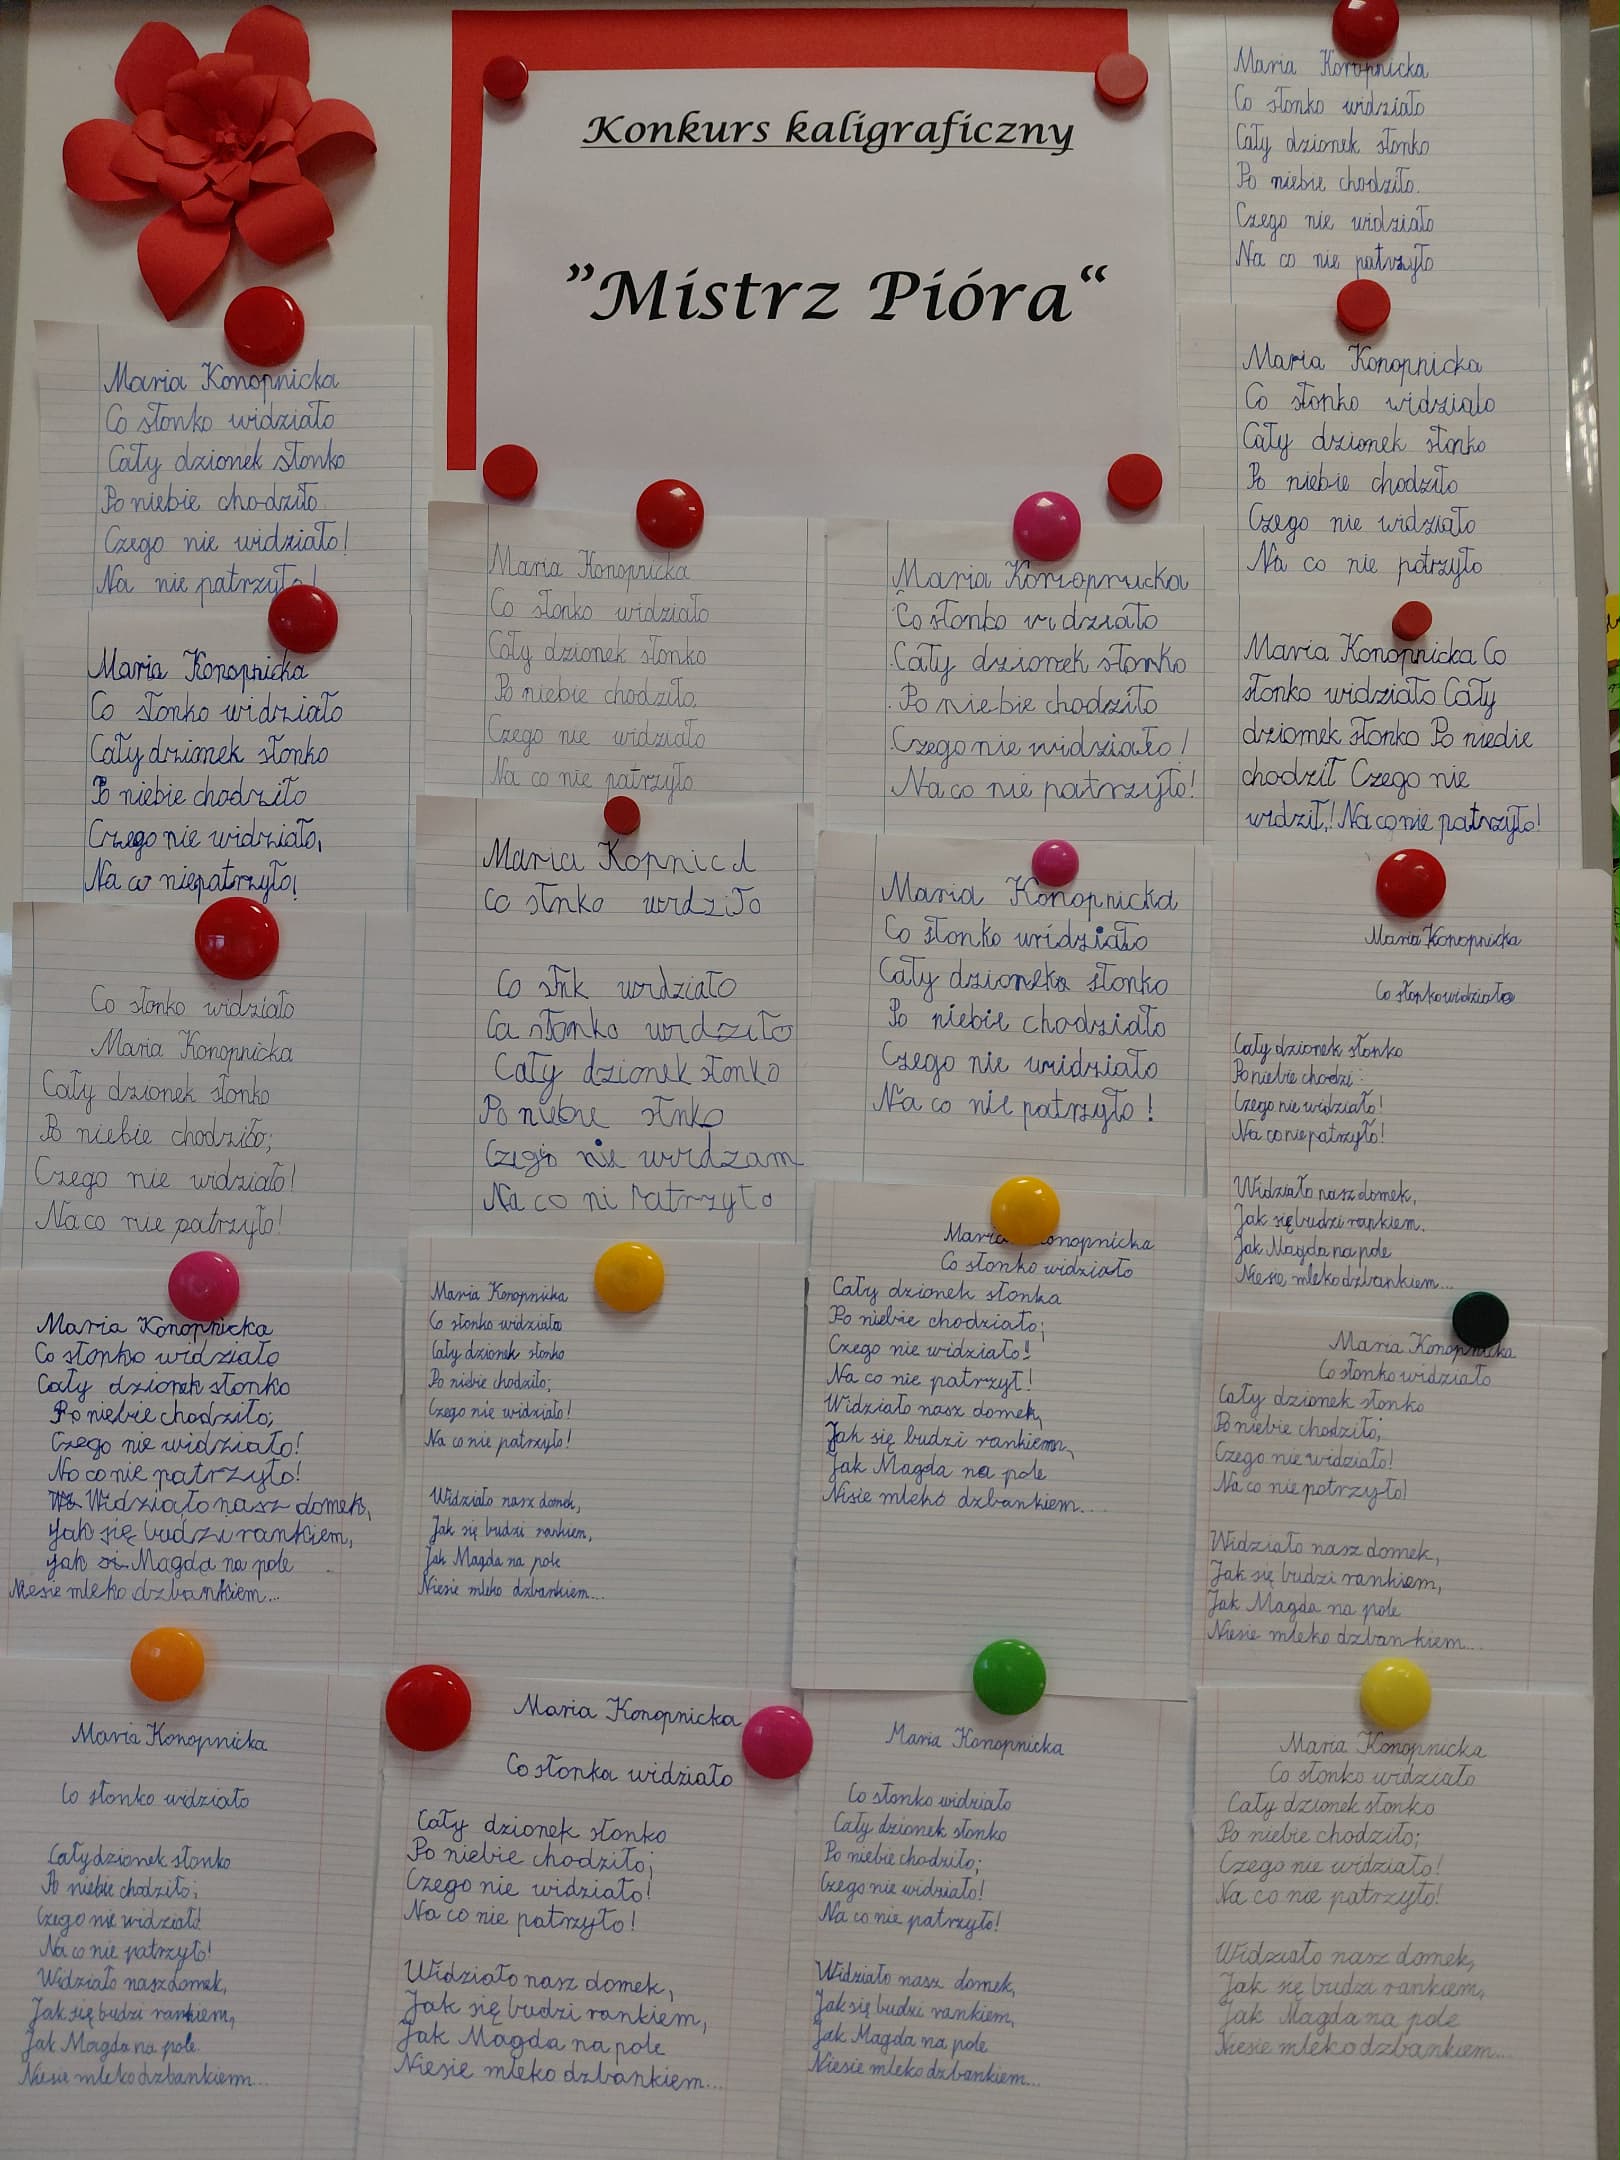 Konkurs kaligraficzny
"Mistrz Pióra"
Maria Konopnicka
Co słonko widziało
Cały dzionek słonko
Po niebie chodziło.
Czego nie widziało
Na co nie patrzyło
Maria Konopnicka
Co słonko widziało
Cały dzionek słonko
Po niebie chodziło
Czego nie widziało!
Na nie patrzyło!
Maria Konopnicka
Co słonko widzialo
Cały dzionek słonko
Po niebie chodziło
Czego nie widziało
Na co nie patrzyło
Maria Konopnicka
Co słonko widziało
Cały dzionek słonko
Po niebie chodziło,
Czego nie widziało
Na co nie patrzyło
Maria Konopnicka
Co słonko widziało
Cały dzionek słonko
Po niebie chodziło
Czego nie widziało!
Na co nie patrzyło!
Maria Konopnicka
Co słonko widziało
Cały dzionek słonko
Po niebie chodziło
Czego nie widziało,
Na co niepatrzyło!
Maria Konopnicka Co
słonko widziało Cały
dziomek słonko Po niedie
chodził Czego nie
Na co nie patrzyło!
Maria
Co słnko
Co słnk widziało
Ca słonko widziło
Cały dzionek słonko
Po niebie słnko
Czego nie
Na co ni
Maria Konopnicka
Co słonko widziało
Cały dzioneka słonko
Po niebie chodziało
Czego nie widziało
Na co nie patrzyło!
Maria Konopnicka
Co słonko widziało
Cały dzionek słonko
Po niebie chodzi
Czego nie widziało!
Na co nie patrzyło!
Widziało nasz domek,
Jak się budzi rankiem.
Jak Magda na pole
Niesie mleko dzbankiem...
Co słonko widziało
Maria Konopnicka
Cały dzionek słonko
Po niebie chodziło;
Czego nie widziało!
Na co nie patrzyło!
Maria Konopnicka
Co słonko widziało
Cały dzionek słonko
Po niebie chodziło;
Czego nie widziało!
Na co nie patrzyło!
Widziało nasz domek,
Jak się budzi rankiem,
Jak Magda na pole
Niesie mleko dzbankiem...
Maria Konopnicka
Co słonko widziało
Cały dzionek słonko
Po niebie chodziło;
Czego nie widziało!
Na co nie patrzyło!
Widziało nasz domek,
Jak się budzi rankiem,
Jak Magda na pole
Niesie mleko dzbankiem....
Maria onopnicka
Co słonko widziało
Cały dzionek słonka
Po niebie chodziało;
Czego nie widziało!
Na co nie patrzył!
Widziało nasz domek,
Jak się budzi rankiem,
Jak Magda na pole
Nisie mleko dzbankiem....
Maria Konopnicka
Co słonko widziało
Cały dzionek słonko
Po niebie chodziło;
Czego nie widziało!
Na co nie patrzyło!
Widziało nasz domek,
Jak się budzi rankiem,
Jak Magda na pole
Niesie mleko dzbankiem...
Maria Konopnicka
Co słonko widziało
Cały dzionek słonko
Po niebie chodziło;
Czego nie widziało!
Na co nie patrzyło!
Widziało nasz domek,
Jak się budzi rankiem,
Jak Magda na pole
Niesie mleko dzbankiem...
Maria Konopnicka
Co słonka widziało
Cały dzionek słonko
Po niebie chodziło;
Czego nie widziało!
Na co nie patrzyło!
Widziało nasz domek,
Jak się budzi rankiem,
Jak Magda na pole
Niesie mleko dzbankiem...
Maria Konopnicka
Co słonko widziało
Cały dzionek słonko
Po niebie chodziło;
Czego nie widziało!
Na co nie patrzyło!
Widziało nasz domek,
Jak się budzi rankiem,
Jak Magda na pole
Niesie mleko dzbankiem...
Maria Konopnicka
Co słonko widziało
Cały dzionek słonko
Po niebie chodziło;
Czego nie widziało!
Na co nie patrzyło!
Widziało nasz domek,
Jak się budzi rankiem,
Jak Magda na pole
Niesie mleko dzbankiem...